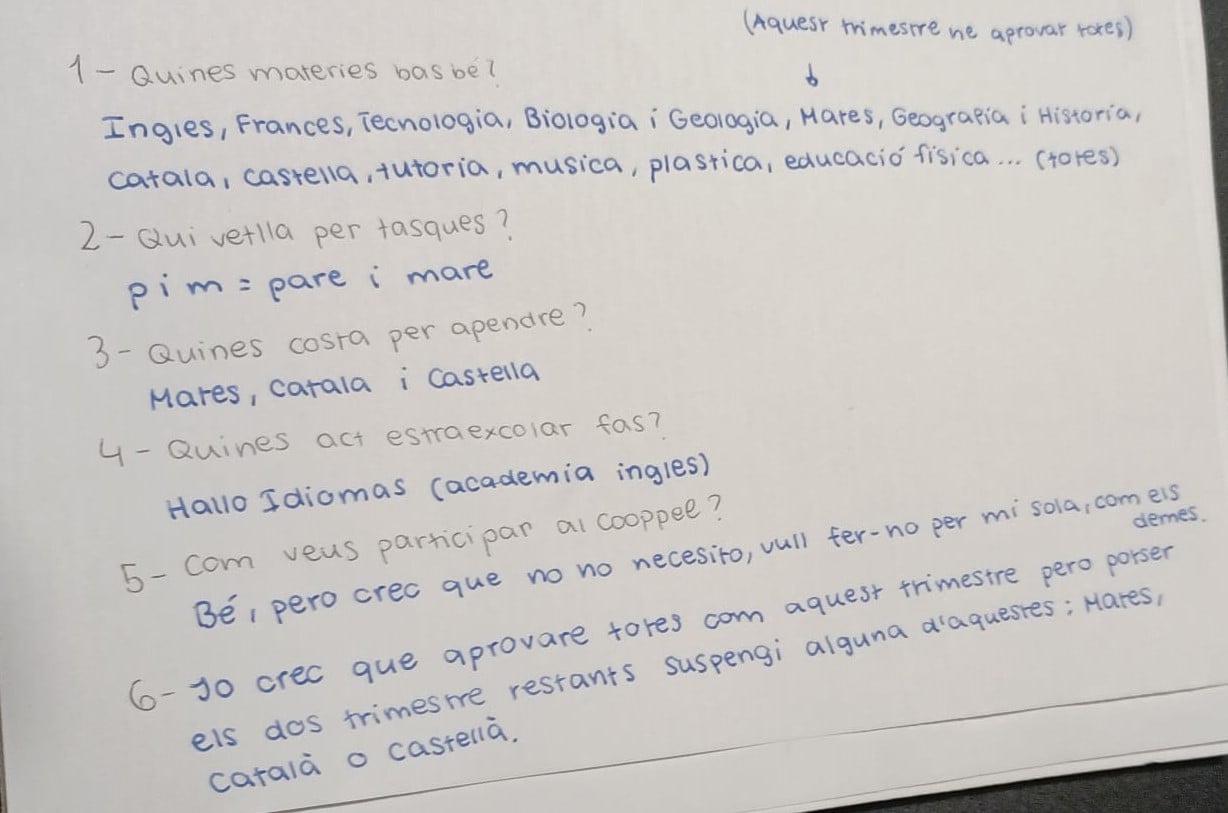 (Aquest trimestre he aprovat totes)
1- Quines materies bas bé?
Ingles, Frances, Tecnologia, Biologia i Geologia, Mates, Geografia i Historia,
catala, castella, tutoria, musica, plastica, educació física... (totes)
2- Qui vetlla per tasques?
p i m = pare i mare
3- Quines costa per apendre?
Mates, catala i Castella
4- Quines act estraexcolar fas?
Hallo Idiomas (academia ingles)
5- Com veus participar al cooppee?
Bé, pero crec que no no necesito, vull fer-no per mi sola, com els
demes.
6- Jo crec que aprovare totes com aquest trimestre pero potser
els dos trimestre restants suspengi alguna d'aquestes: Mates,
català o castellà.